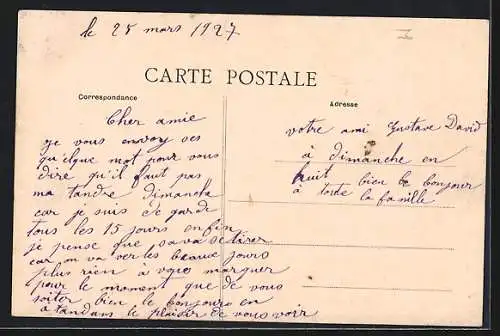 le 28 mars 1927
CARTE POSTALE
Correspondance
Adresse
Cher amie
je vous envoy ses
quelque mot pour vous
dire qu'il faut pas
ma tandre dimanche
car je suis de garde
tous les 15 jours enfin
je pense que sa va se tirer
car on va vers les beaux jours
plus rien à vous marquer
pour le moment que de vous
soiter bien le bonjours en
atandans le plaisir de vous voir
votre ami Gustave David
à dimanche en
huit bien le bonjour
à toute la famille